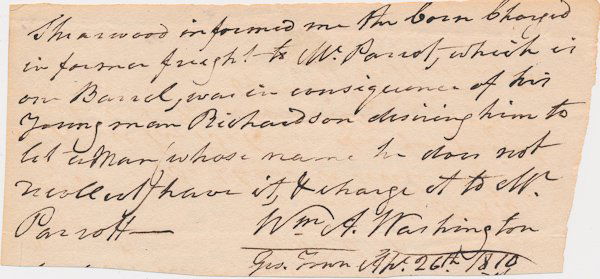 Shearwood informed me the Corn Charged
in former freight to Mr. Parrot, which is
one Barrel, was in consequence of his
Young man Richardson desiring him to
let a Man (whose name he does not
recollect) have it, & charge it to Mr.
Parrott—
Wm. A. Washington
Geo. Town Apr. 26th. 1810